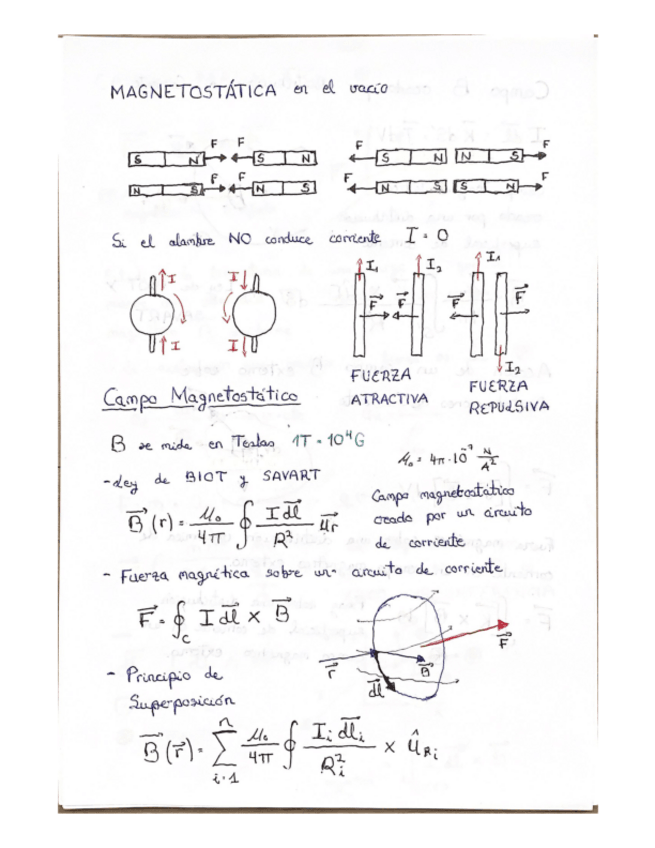 MAGNETOSTÁTICA en el vacío
F F F F
S N S N S N N S
F F F F
N S N S N S S N
Si el alambre NO conduce corriente I = 0
I I I₁ I₂ I₁
F F F F
I I I₂
FUERZA ATRACTIVA
FUERZA REPULSIVA
Campo Magnetostático
B se mide en Teslas 1T = 10⁴G
μ₀ = 4π·10⁻⁷ N/A²
- Ley de BIOT y SAVART
B⃗(r) = μ₀/4π ∮ I dl⃗/R² u⃗r
Campo magnetostático
creado por un circuito
de corriente
- Fuerza magnética sobre un circuito de corriente
F⃗ = ∮c I dl⃗ × B⃗
r⃗ dl⃗ B⃗ F⃗
- Principio de
Superposición
B⃗(r⃗) = Σ i=1 n μ₀/4π ∮ Iᵢ dl⃗ᵢ/Rᵢ² × ûRᵢ